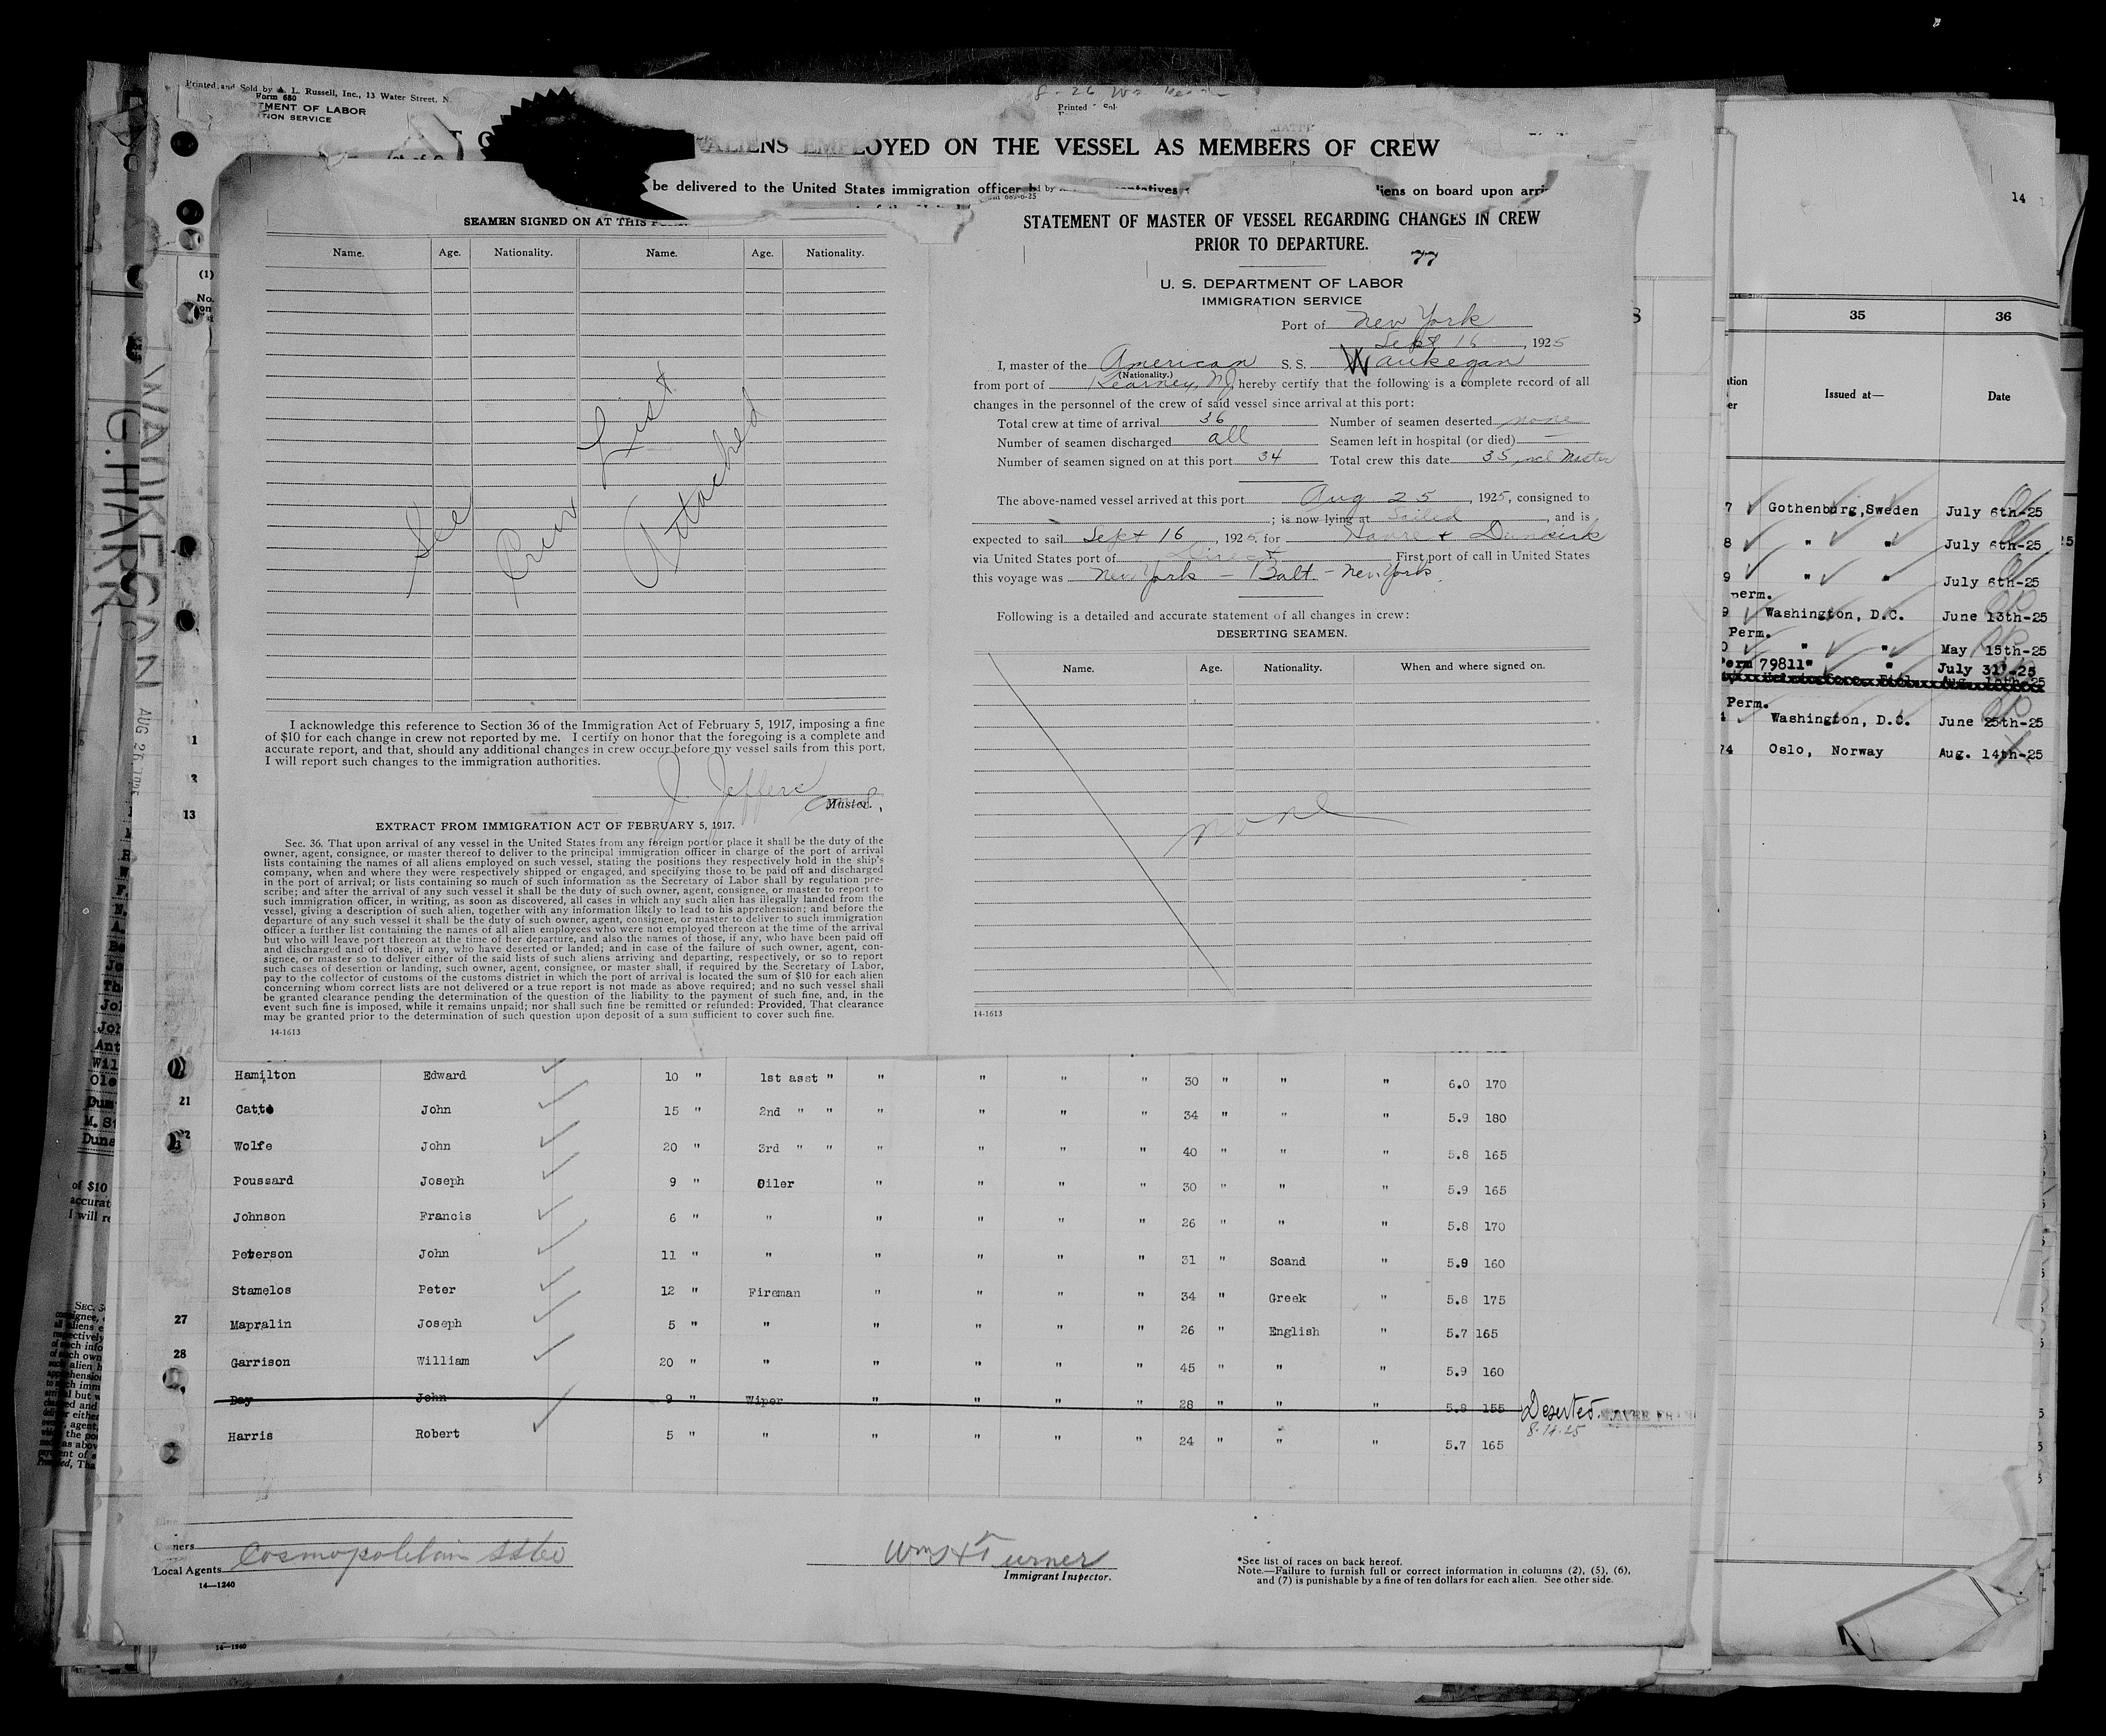 Printed and Sold by A. L. Russell, Inc., 13 Water Street, N.
Form 680
TMENT OF LABOR
TION SERVICE
Printed
ALIENS EMPLOYED ON THE VESSEL AS MEMBERS OF CREW
be delivered to the United States immigration officer
liens on board upon arri
SEAMEN SIGNED ON AT THIS
Name. Age. Nationality. Name. Age. Nationality.
See Crew List Attached
I acknowledge this reference to Section 36 of the Immigration Act of February 5, 1917, imposing a fine
of $10 for each change in crew not reported by me. I certify on honor that the foregoing is a complete and
accurate report, and that, should any additional changes in crew occur before my vessel sails from this port,
I will report such changes to the immigration authorities.
J. Jeffers
Master.
EXTRACT FROM IMMIGRATION ACT OF FEBRUARY 5, 1917.
Sec. 36. That upon arrival of any vessel in the United States from any foreign port or place it shall be the duty of the
owner, agent, consignee, or master thereof to deliver to the principal immigration officer in charge of the port of arrival
lists containing the names of all aliens employed on such vessel, stating the positions they respectively hold in the ship's
company, when and where they were respectively shipped or engaged, and specifying those to be paid off and discharged
in the port of arrival; or lists containing so much of such information as the Secretary of Labor shall by regulation pre-
scribe; and after the arrival of any such vessel it shall be the duty of such owner, agent, consignee, or master to report to
such immigration officer, in writing, as soon as discovered, all cases in which any such alien has illegally landed from the
vessel, giving a description of such alien, together with any information likely to lead to his apprehension; and before the
departure of any such vessel it shall be the duty of such owner, agent, consignee, or master to deliver to such immigration
officer a further list containing the names of all alien employees who were not employed thereon at the time of the arrival
but who will leave port thereon at the time of her departure, and also the names of those, if any, who have been paid off
and discharged and of those, if any, who have deserted or landed; and in case of the failure of such owner, agent, con-
signee, or master so to deliver either of the said lists of such aliens arriving and departing, respectively, or so to report
such cases of desertion or landing, such owner, agent, consignee, or master shall, if required by the Secretary of Labor,
pay to the collector of customs of the customs district in which the port of arrival is located the sum of $10 for each alien
concerning whom correct lists are not delivered or a true report is not made as above required; and no such vessel shall
be granted clearance pending the determination of the question of the liability to the payment of such fine, and, in the
event such fine is imposed, while it remains unpaid; nor shall such fine be remitted or refunded: Provided, That clearance
may be granted prior to the determination of such question upon deposit of a sum sufficient to cover such fine.
14-1613
STATEMENT OF MASTER OF VESSEL REGARDING CHANGES IN CREW
PRIOR TO DEPARTURE.
77
U. S. DEPARTMENT OF LABOR
IMMIGRATION SERVICE
Port of New York
Sept 16, 1925
I, master of the American S. S. Waukegan
(Nationality.)
from port of Kearney, NJ hereby certify that the following is a complete record of all
changes in the personnel of the crew of said vessel since arrival at this port:
Total crew at time of arrival 36 Number of seamen deserted none
Number of seamen discharged all Seamen left in hospital (or died) —
Number of seamen signed on at this port 34 Total crew this date 35 incl Master
The above-named vessel arrived at this port Aug 25, 1925, consigned to
; is now lying at Sailed, and is
expected to sail Sept 16, 1925 for Havre & Dunkirk
via United States port of Direct First port of call in United States
this voyage was New York - Balt. - New York.
Following is a detailed and accurate statement of all changes in crew:
DESERTING SEAMEN.
Name. Age. Nationality. When and where signed on.
none
14-1613
14
35 36
Issued at— Date
7 Gothenburg, Sweden July 6th-25
8 " " July 6th-25
9 " " July 6th-25
perm.
9 Washington, D.C. June 13th-25
Perm.
0 " " May 15th-25
Perm 79811" " July 31"-25
Perm.
Washington, D.C. June 25th-25
74 Oslo, Norway Aug. 14th-25
WAUKEGAN
G. HARR
(1)
No.
on
1
13
Hamilton Edward 10 " 1st asst " " " " " 30 " " " 6.0 170
21 Catto John 15 " 2nd " " " " " " 34 " " " 5.9 180
Wolfe John 20 " 3rd " " " " " " 40 " " " 5.8 165
Poussard Joseph 9 " Oiler " " " " 30 " " " 5.9 165
Johnson Francis 6 " " " " " " 26 " " " 5.8 170
Peterson John 11 " " " " " " 31 " Scand " 5.9 160
Stamelos Peter 12 " Fireman " " " " 34 " Greek " 5.8 175
27 Mapralin Joseph 5 " " " " " " 26 " English " 5.7 165
28 Garrison William 20 " " " " " " 45 " " " 5.9 160
Day John 9 " Wiper " " " " 28 " " " 5.8 155 Deserted
Harris Robert 5 " " " " " " 24 " " " 5.7 165
Owners
Local Agents Cosmopolitan SSCo
14—1240
Wm H Turner
Immigrant Inspector.
*See list of races on back hereof.
Note.—Failure to furnish full or correct information in columns (2), (5), (6),
and (7) is punishable by a fine of ten dollars for each alien. See other side.
14—1240